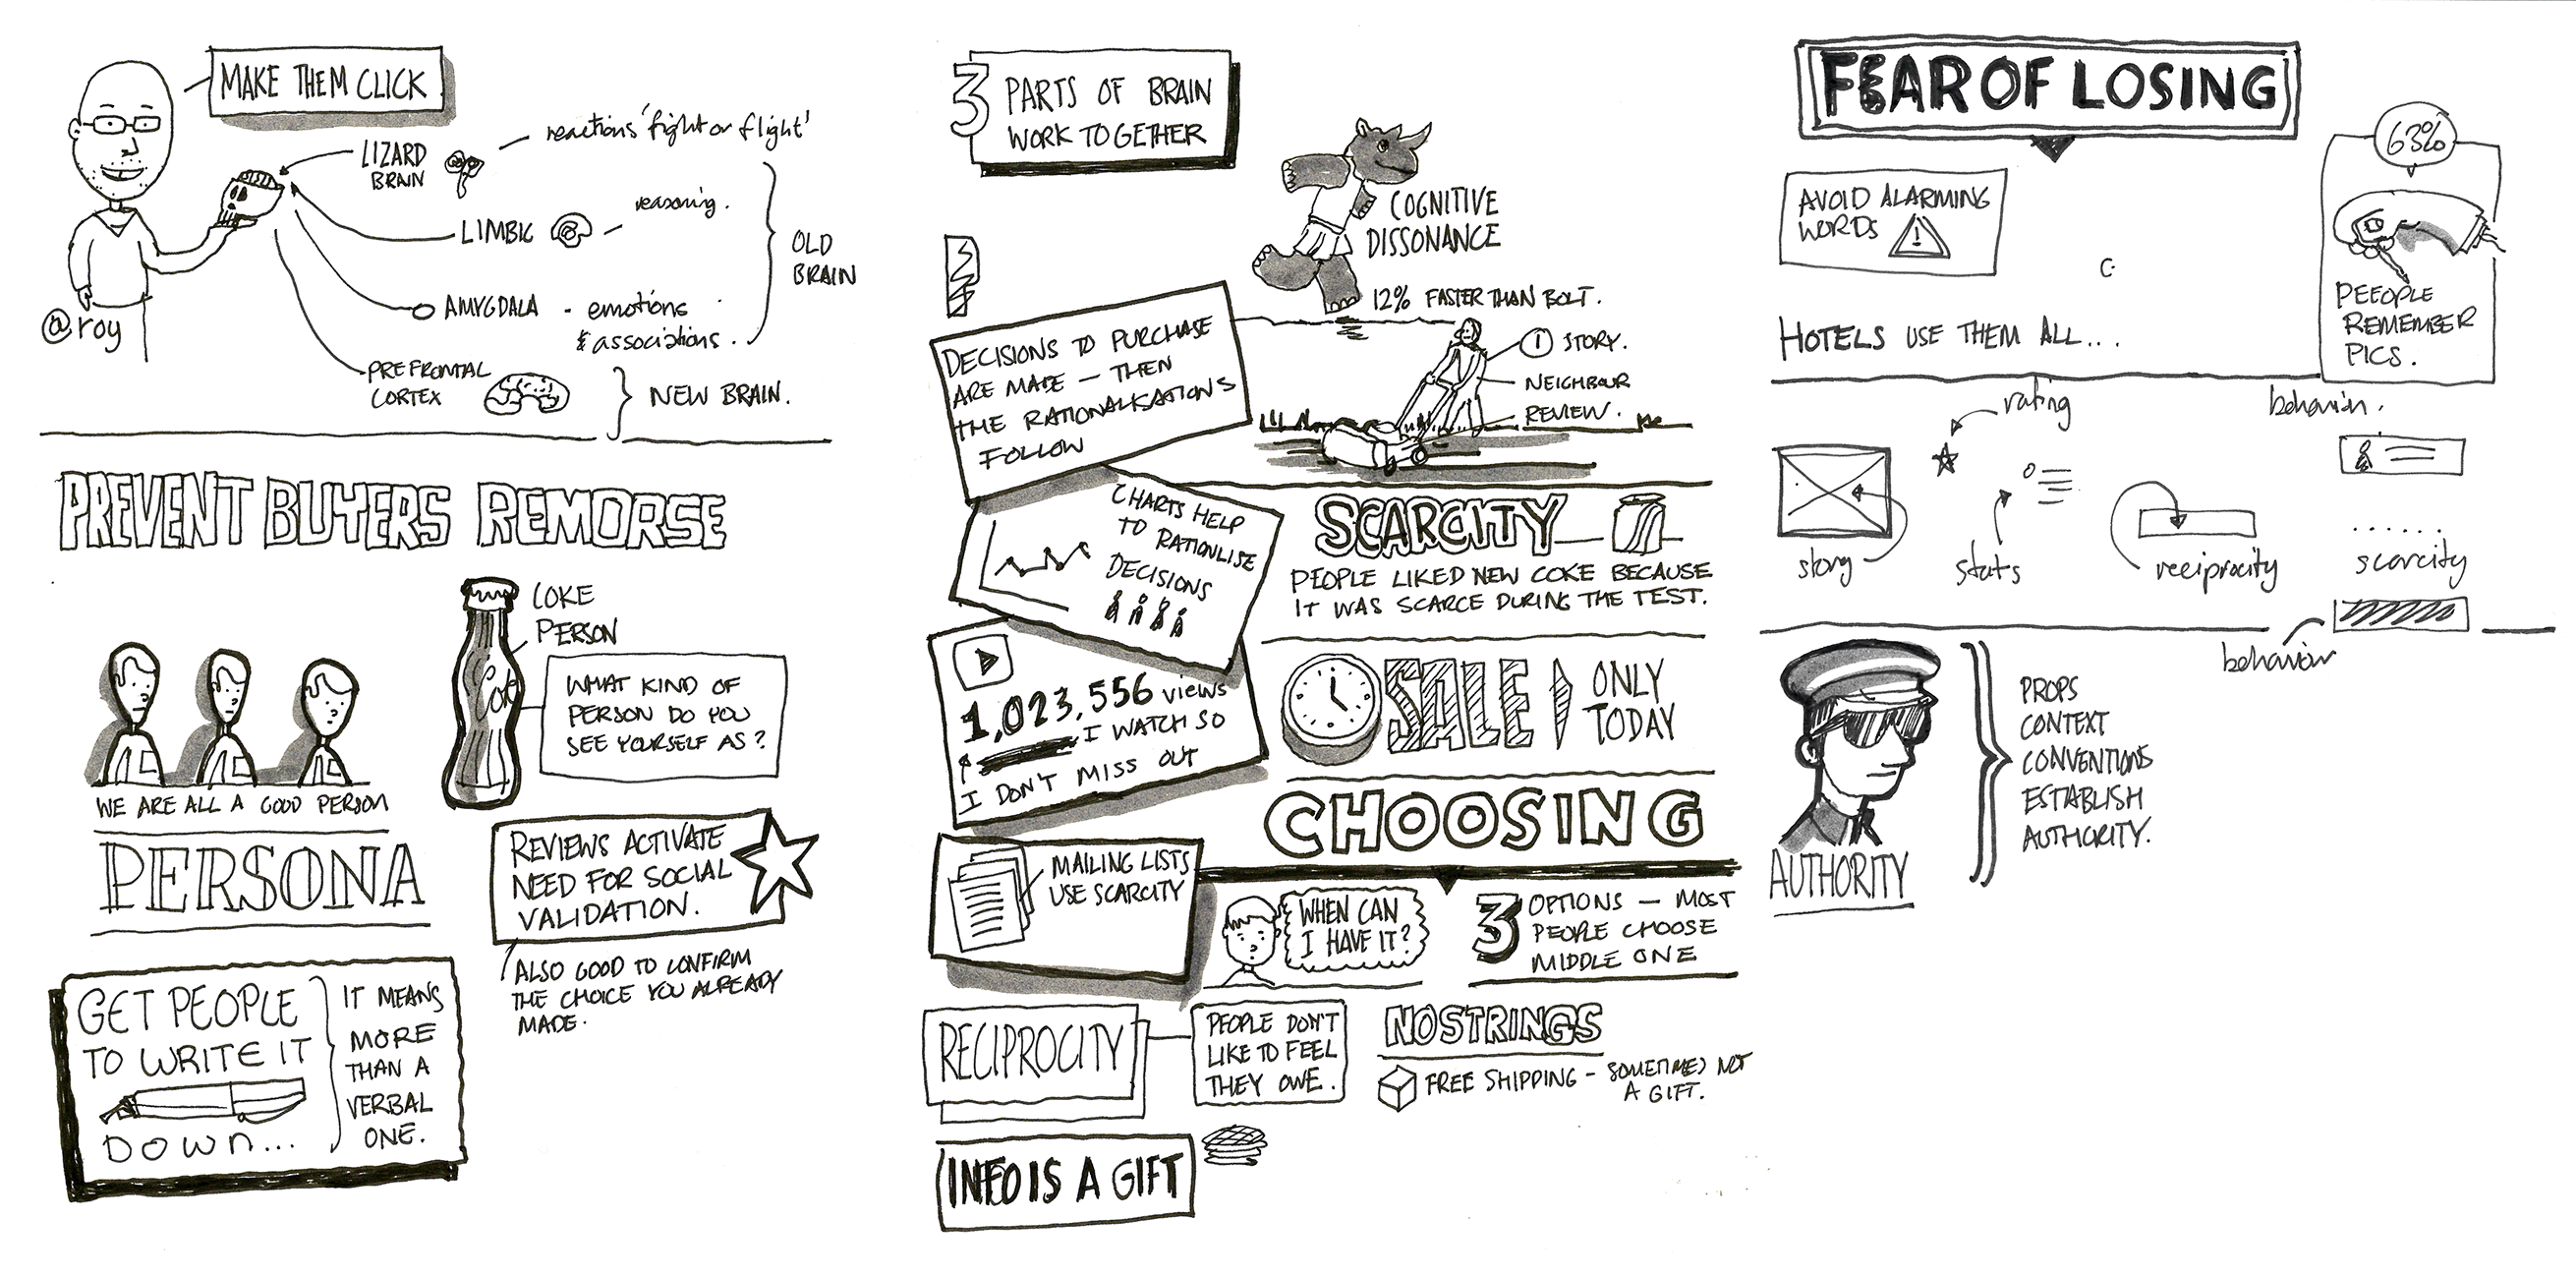 MAKE THEM CLICK
@roy
LIZARD
BRAIN
reactions 'fight or flight'
LIMBIC
reasoning.
AMYGDALA - emotions
& associations.
OLD
BRAIN
PREFRONTAL
CORTEX
NEW BRAIN.
PREVENT BUYERS REMORSE
WE ARE ALL A GOOD PERSON
PERSONA
COKE
PERSON
Coke
WHAT KIND OF
PERSON DO YOU
SEE YOURSELF AS?
REVIEWS ACTIVATE
NEED FOR SOCIAL
VALIDATION.
ALSO GOOD TO CONFIRM
THE CHOICE YOU ALREADY
MADE.
GET PEOPLE
TO WRITE IT
DOWN...
IT MEANS
MORE
THAN A
VERBAL
ONE.
3 PARTS OF BRAIN
WORK TOGETHER
COGNITIVE
DISSONANCE
12% FASTER THAN BOLT.
DECISIONS TO PURCHASE
ARE MADE — THEN
THE RATIONALISATIONS
FOLLOW
1 STORY.
NEIGHBOUR
REVIEW.
CHARTS HELP
TO RATIONLISE
DECISIONS
SCARCITY
PEOPLE LIKED NEW COKE BECAUSE
IT WAS SCARCE DURING THE TEST.
1,023,556 views
I WATCH SO
I DON'T MISS OUT
SALE!
ONLY
TODAY
CHOOSING
MAILING LISTS
USE SCARCITY
WHEN CAN
I HAVE IT?
3 OPTIONS — MOST
PEOPLE CHOOSE
MIDDLE ONE
RECIPROCITY
PEOPLE DON'T
LIKE TO FEEL
THEY OWE.
NO STRINGS
FREE SHIPPING - SOMETIMES NOT
A GIFT.
INFO IS A GIFT
FEAR OF LOSING
AVOID ALARMING
WORDS
!
63%
PEEOPLE
REMEMBER
PICS.
HOTELS USE THEM ALL...
rating
behavior.
story
stats
reciprocity
scarcity
behaviour
AUTHORITY
PROPS
CONTEXT
CONVENTIONS
ESTABLISH
AUTHORITY.